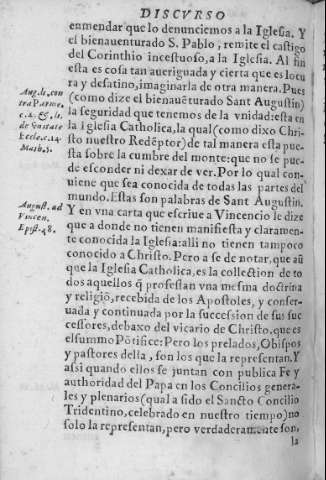 DISCVRSO
enmendar que lo denunciemos a la Iglesia. Y
el bienauenturado S. Pablo, remite el castigo
del Corinthio incestuoso, a la Iglesia. Al fin
esta es cosa tan aueriguada y cierta que es locu
ra y desatino, imaginarla de otra manera. Pues
(como dize el bienauēturado Sant Augustin)
la seguridad que tenemos de la vnidad: esta en
la Iglesia Catholica, la qual (como dixo Chri-
sto nuestro Redēptor) de tal manera esta pue-
sta sobre la cumbre del monte: que no se pue-
de esconder ni dexar de ver. Por lo qual con-
uiene que sea conocida de todas las partes del
mundo. Estas son palabras de Sant Augustin.
Y en vna carta que escriue a Vincencio le dize
que a donde no tienen manifiesta y claramen-
te conocida la Iglesia: alli no tienen tampoco
conocido a Christo. Pero a se de notar, que aū
que la Iglesia Catholica, es la collection de to
dos aquellos q̄ professan vna mesma doctrina
y religiō, recebida de los Apostoles, y conser-
uada y continuada por la succession de sus suc
cessores, debaxo del vicario de Christo, que es
el summo Pōtifice: Pero los prelados, Obispos
y pastores della, son los que la representan. Y
assi quando ellos se juntan con publica Fe y
authoridad del Papa en los Concilios genera-
les y plenarios (qual a sido el Sancto Concilio
Tridentino, celebrado en nuestro tiempo) no
solo la representan, pero verdaderamente son,
la
Aug. li. con
tra Parme.
c. 2. &
Eccle. c. 14
Math. 5.
August. ad
Vincen.
Epist. 48.